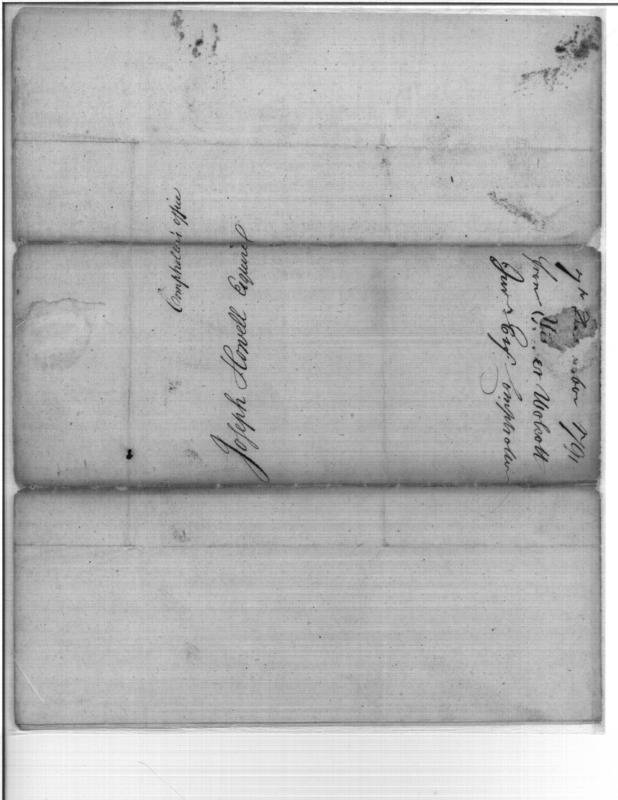 Comptrollers Office
Joseph Howell Esquire
7th 1791
from Wolcott
Junr Esqr Comptroller